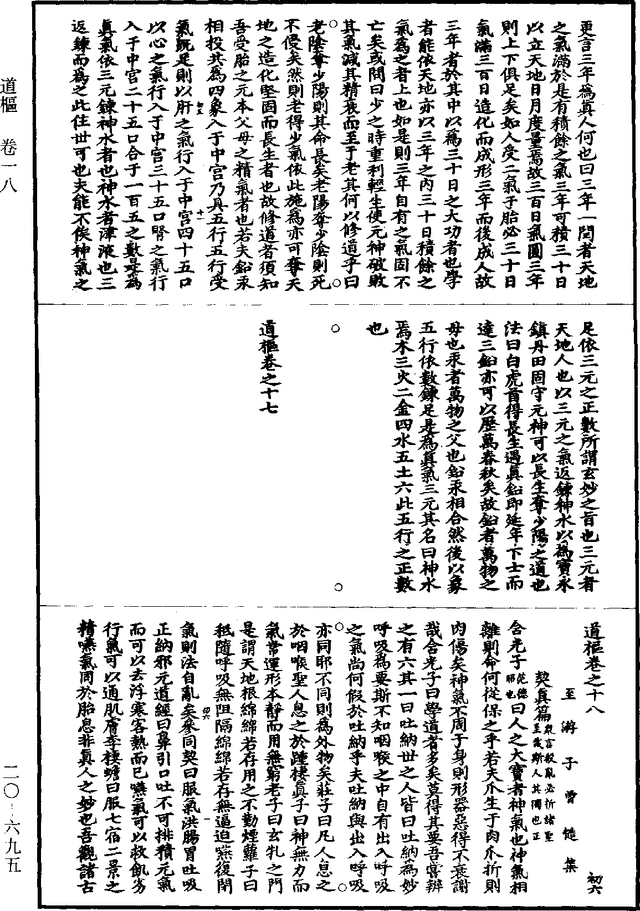 更言三年爲真人何也曰三年一閏者天地
之氣滿於是有積餘之氣三年可積三十日
以立天地日月度量焉故三百日氣圓三年
則上下俱足矣如人受二氣子胎必三十日
氣滿三百日造化而成形三年而後成人故
三年者於其中以爲三十日之大功者也學
者能依天地亦以三年之內三十日積餘之
氣爲之者上也如是則三年自有之氣固不
亡矣或問曰少之時重利輕生使元神破敗
其氣減其精衰而至于老其何以修道乎曰
老陰奪少陽則其命長矣老陽奪少陰則死
不侵矣然則老得少氣依此施爲亦可奪天
地之造化堅固而長生者也故修道者須知
吾受胎之元本父母之精氣者也若夫鉛汞
相投共爲四象入于中宮乃具五行五行受
氣既足則以肝之氣行入于中宮四十五口
以心之氣行入于中宮三十五口腎之氣行
入于中宮二十五口合子一百五之數是爲
真氣依三元鍊神水者也神水者津液也三
返鍊而爲之此住世可也夫能不俟神氣之
足依三元之正數所謂玄妙之旨也三元者
天地人也以三元之氣返鍊神水以爲寶永
鎮丹田固守元神可以長生奪少陽之道也
法曰白虎首得長生遇真鉛即延年下士而
達三鉛亦可以歷萬春秋矣故鉛者萬物之
母也汞者萬物之父也鉛汞相合然後以象
五行依數鍊足是爲真氣三元其名曰神水
焉木三火二金四水五土六此五行之正數
也
道樞卷之十七
道樞卷之十八
至游子曾慥集
初六
契真篇 衆言殽亂必折諸聖至哉斯人其獨也正
含光子 范德昭也 曰人之大寶者神氣也神氣相
離則命何從保之乎若夫爪生于肉爪折則
肉傷矣神氣不周于身則形器惡得不衰謝
哉含光子曰學道者多矣莫得其要吾嘗辨
之有六其一曰吐納世之人皆曰吐納爲妙
呼吸爲要斯不知咽喉之中自有出入呼吸
之氣尚何假於吐納乎夫吐納與出入呼吸
亦同耶不同則爲外物矣莊子曰凡人息之
於咽喉聖人息之於踵棲真子曰神無力而
氣常運形本靜而用無窮老子曰玄牝之門
是謂天地根綿綿若存用之不勤煙蘿子曰
秖隨呼吸無阻隔綿綿若存無逼迫嚥後閉
氣則法自亂矣參同契曰服氣洪腸胃吐吸
正納邪元道經曰鼻引口吐不可排積元氣
而可以去浮寒客熱而已嚥氣可以救飢劣
行氣可以通肌膚李棲蟾曰服七宿二景之
精嚥氣同於胎息非真人之妙也吾觀諸古
道樞 卷一八
二〇-六九五